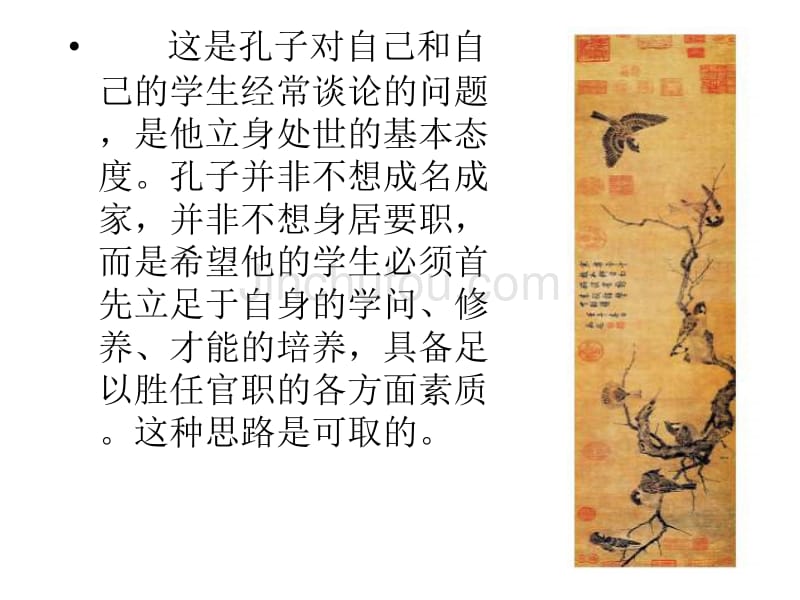 • 这是孔子对自己和自
己的学生经常谈论的问题
，是他立身处世的基本态
度。孔子并非不想成名成
家，并非不想身居要职，
而是希望他的学生必须首
先立足于自身的学问、修
养、才能的培养，具备足
以胜任官职的各方面素质
。这种思路是可取的。